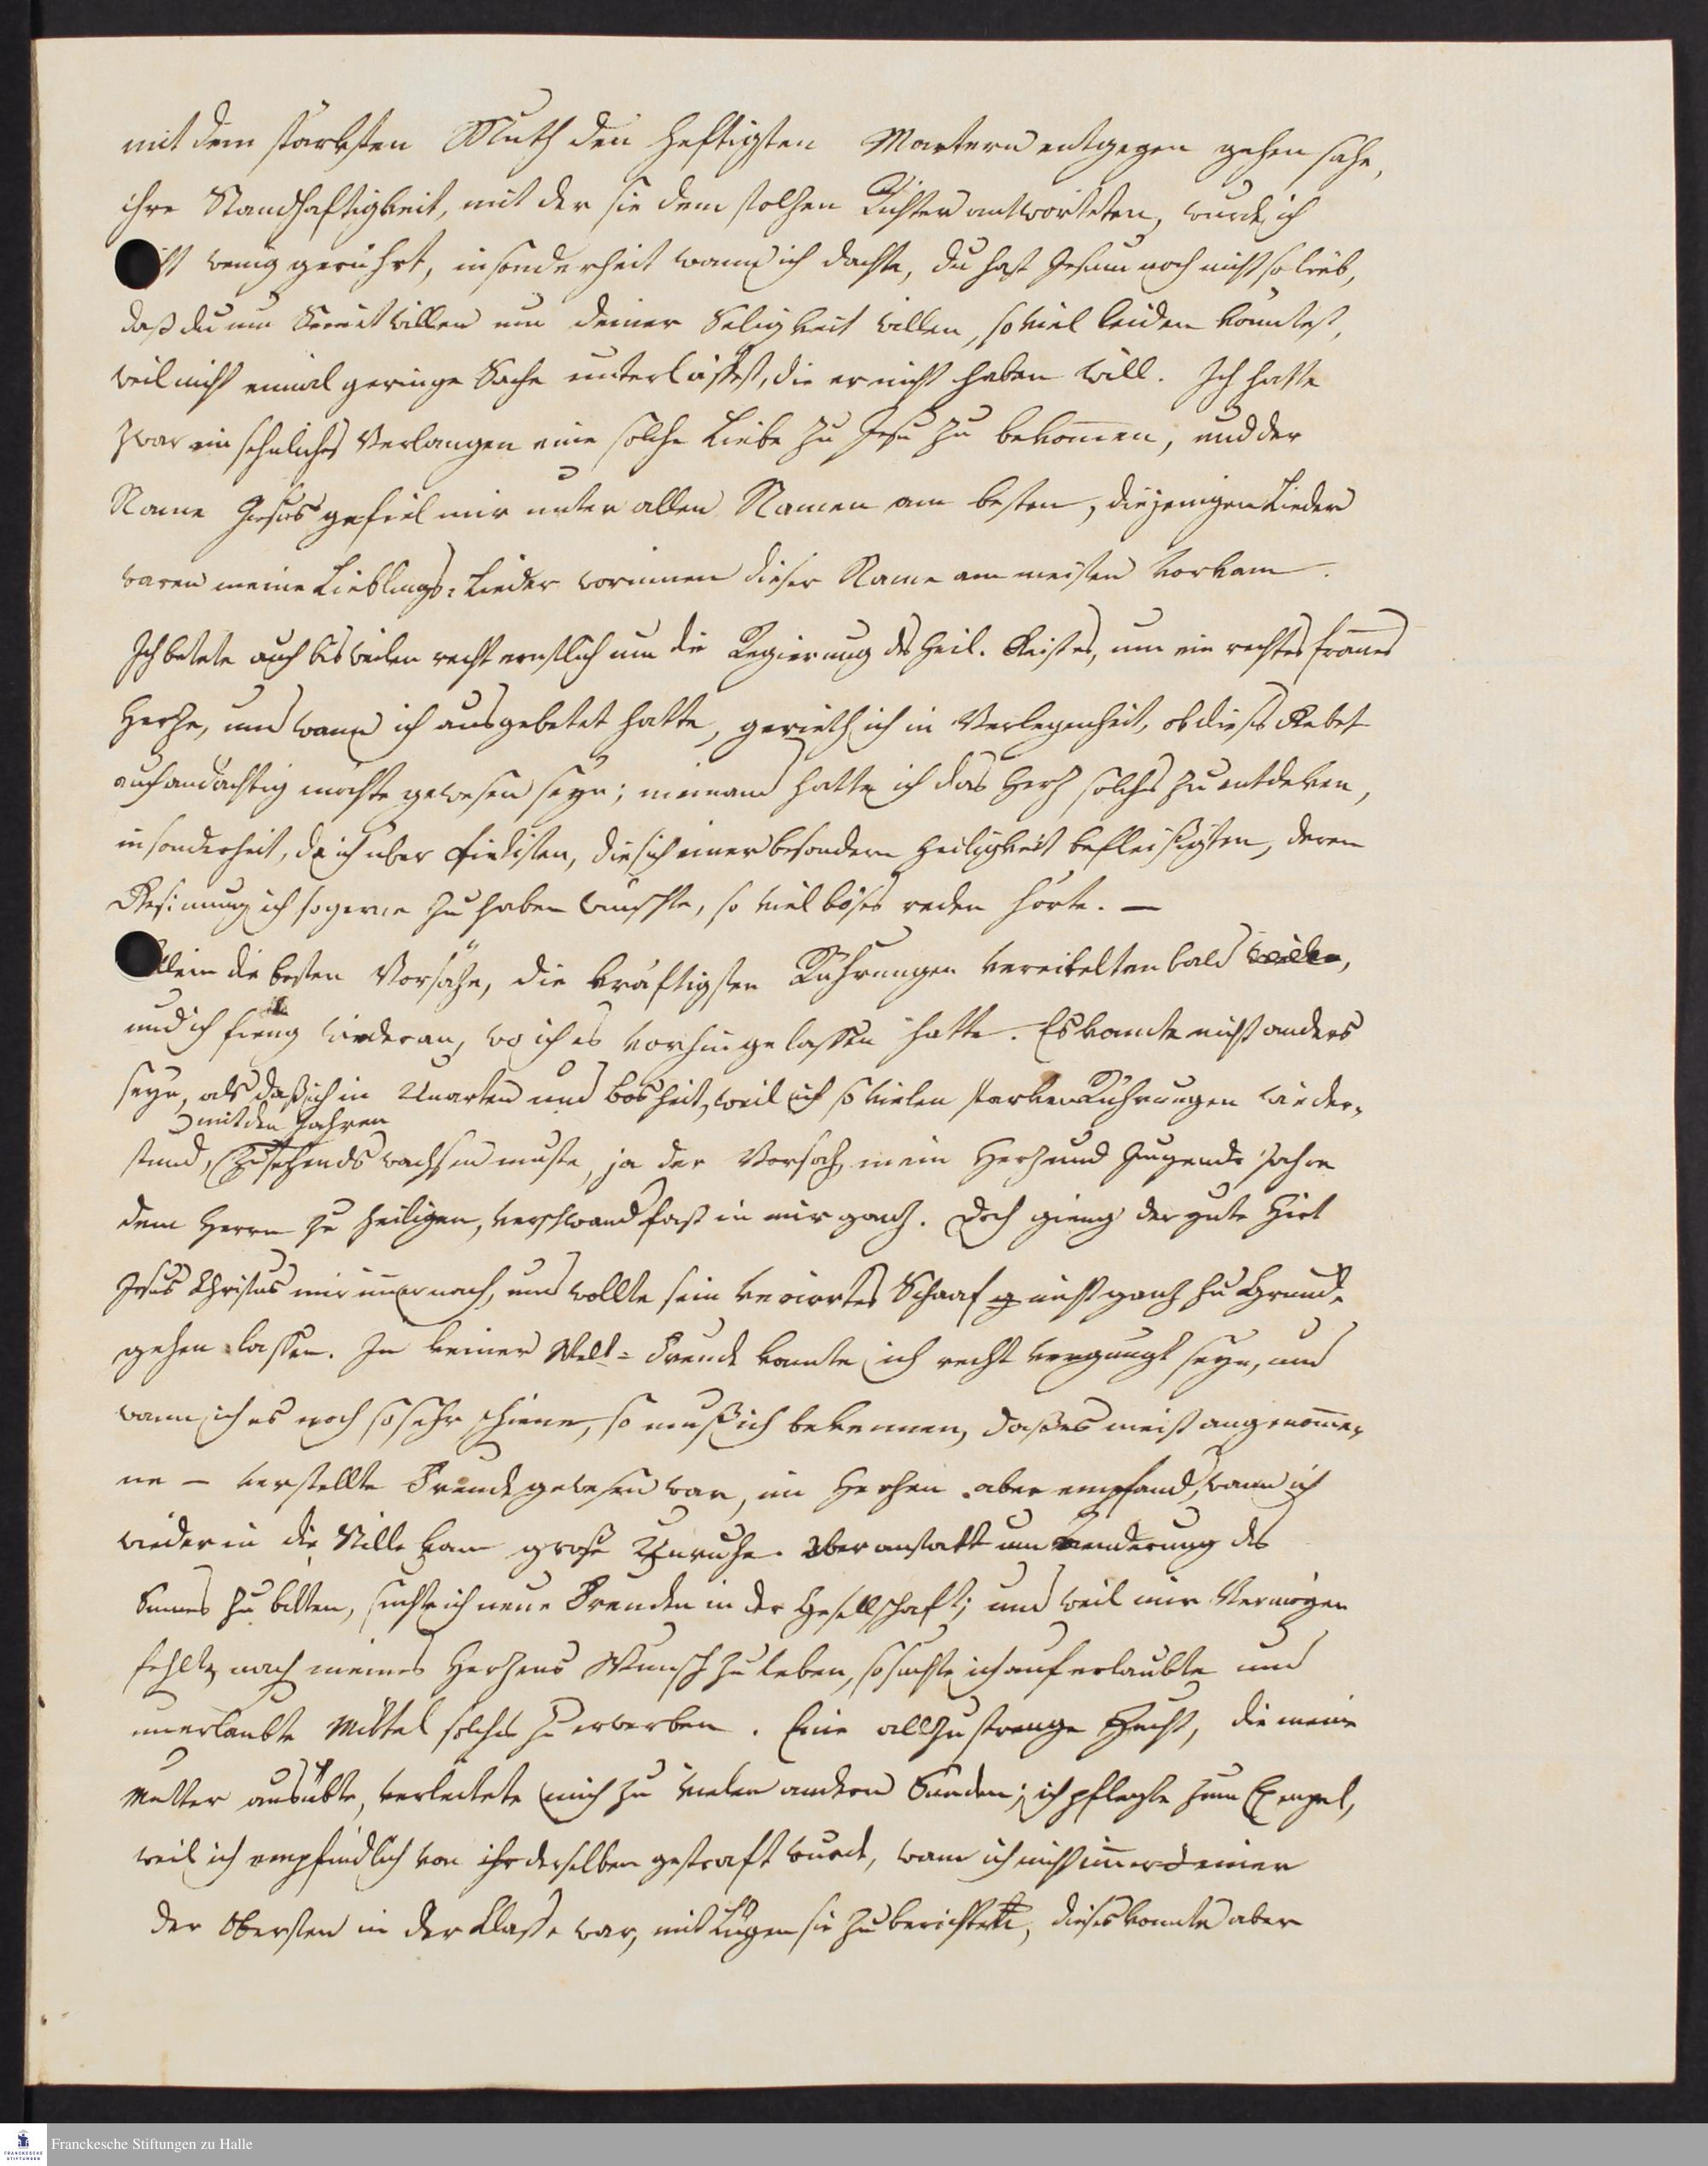 mit dem stärksten Muth den heftigsten Martern entgegen gehen sahe,
ihre Standhaftigkeit, mit der sie dem stolzen Richter antworteten, wurde ich
nicht wenig gerührt, insonderheit wann ich dachte, du hast Jesum noch nicht so lieb,
daß du um Seinetwillen um deiner Seligkeit willen, so viel leiden könntest,
weil nicht einmal geringe Sache unterläßest, die er nicht haben will. Ich hatte
zwar ein sehnliches Verlangen eine solche Liebe zu Jesu zu bekommen, und der
Name Jesus gefiel mir unter allen Namen am besten, diejenigen Lieder
waren meine Lieblings-Lieder worinnen dieser Name am meisten vorkam.
Ich betete auch bisweilen recht ernstlich um die Regierung des Heil. Geistes, um ein rechtes frommes
Herze, und wann ich ausgebetet hatte, gerieth ich in Verlegenheit, ob dieses Gebet
auch andächtig möchte gewesen seyn; niemand hatte ich das Herz solches zu entdeken,
insonderheit, da ich über Pietisten, die sich einer besondern Heiligkeit befleißigten, deren
Gesinnung ich so gerne zu haben wünschte, so viel böses reden hörte. —
Allein die besten Vorsäze, die kräftigsten Rührungen vereitelten bald
und ich fieng wieder an, wo ich es vorhin gelassen hatte. Es konnte nicht anders
seyn, als daß ich in Unarten und Bosheit, weil ich so vielen starken Rührungen wieder-
mit den Jahren
stund, zusehends wachsen muste, ja der Vorsaz, mein Herz und Jugend-Jahre
dem Herrn zu heiligen, verschwand fast in mir ganz. Doch gieng der gute Hirt
Jesus Christus mir immer nach, und wollte sein verirrtes Schaaf nicht ganz zu Grunde
gehen lassen. In keiner Welt-Freude konnte ich recht vergnügt seyn, und
wann ich es noch so sehr schiene, so muß ich bekennen, daß es meist angenomme-
ne – verstellte Freude gewesen war, im Herzen aber empfand, wann ich
wieder in die Stille kam große Unruhe. Aber anstatt um Aenderung des
Sinnes zu bitten, suchte ich neue Freuden in der Gesellschaft; und weil mir Vermögen
fehlte, nach meines Herzens Wunsch zu leben, so suchte ich auf erlaubte und
unerlaubte Mittel solches zu erwerben. Eine allzu strenge Zucht, die meine
Mutter ausübte, verleitete mich zu vielen andern Sünden; ich pflegte zum Exempel,
weil ich empfindlich von ihr derselben gestraft wurde, wann ich nicht immer einer
der Obersten in der Classe war, mit Lügen sie zu berichten, dieses konnte aber
Franckesche Stiftungen zu Halle